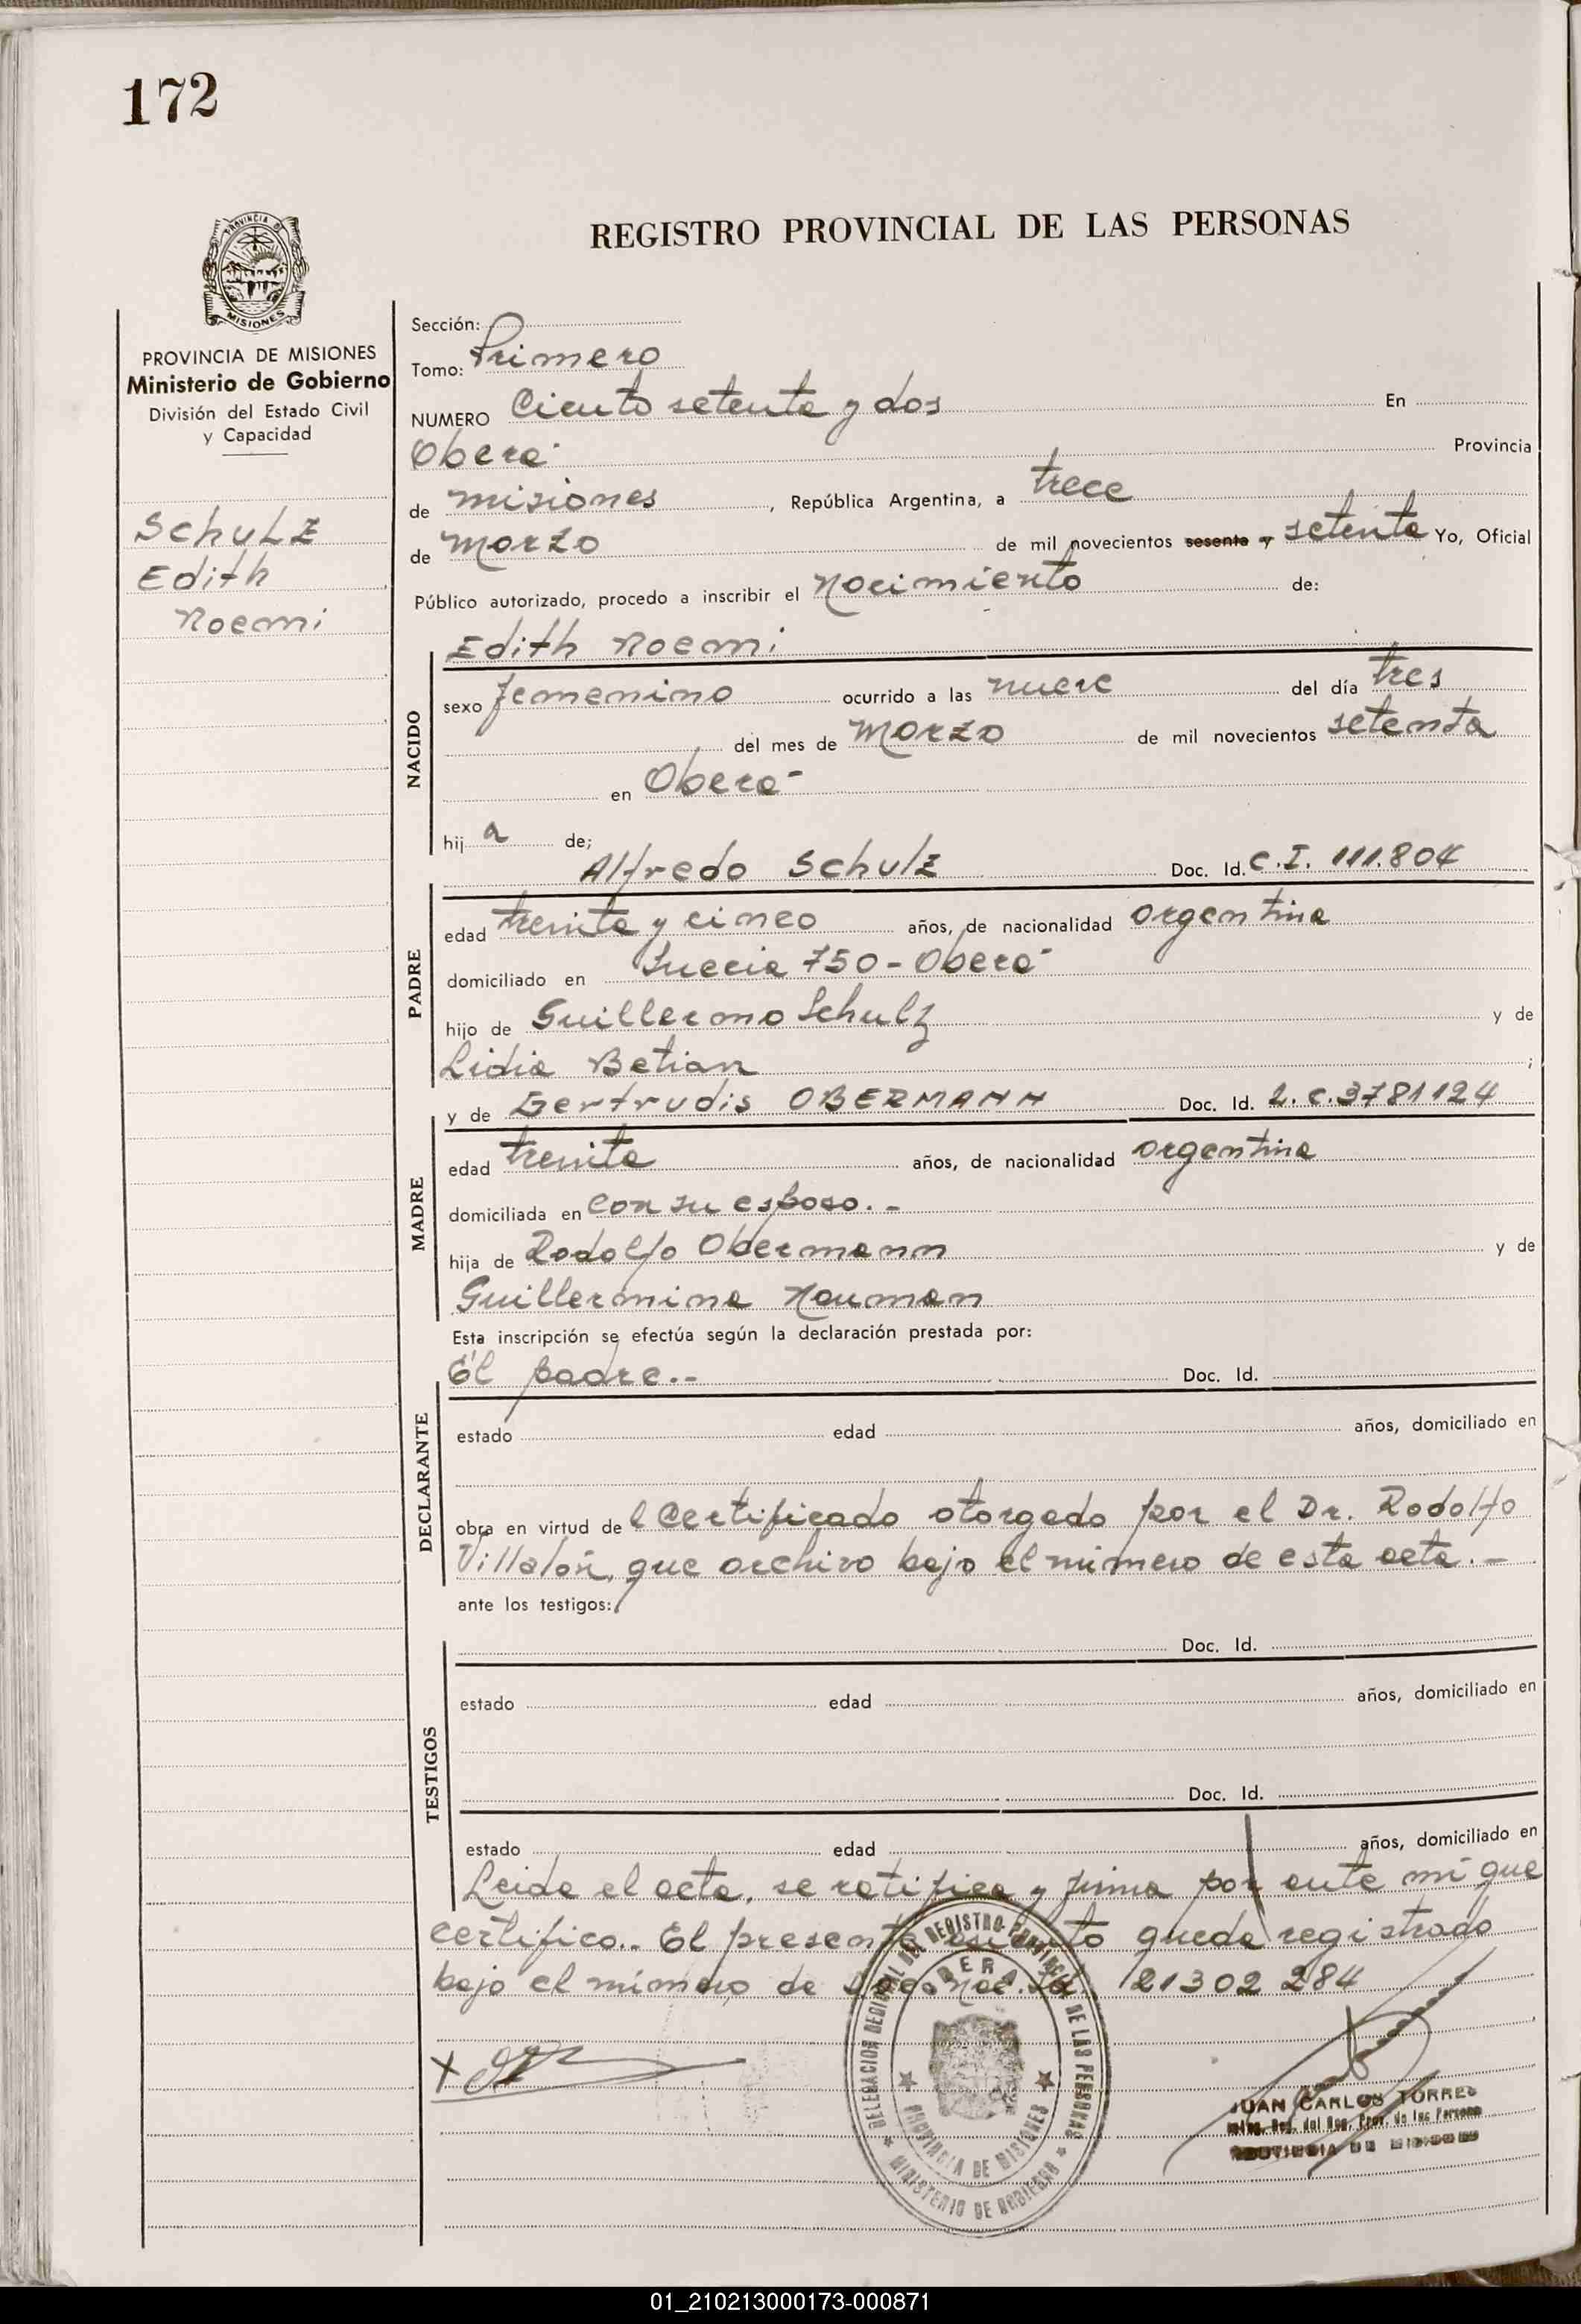 172
PROVINCIA DE
MISIONES
REGISTRO PROVINCIAL DE LAS PERSONAS
PROVINCIA DE MISIONES
Ministerio de Gobierno
División del Estado Civil
y Capacidad
Schulz
Edith
Noemi
Sección:
Tomo: Primero
NUMERO Ciento setenta y dos En
Oberá Provincia
de misiones, República Argentina, a trece
de marzo de mil novecientos sesenta y setenta Yo, Oficial
Público autorizado, procedo a inscribir el nacimiento de:
Edith Noemi
NACIDO
sexo femenino ocurrido a las nueve del día tres
del mes de marzo de mil novecientos setenta
en Oberá
hija de;
Alfredo Schulz Doc. Id. C.I. 111.804
PADRE
edad treinta y cinco años, de nacionalidad argentina
domiciliado en Suecia 750 - Oberá
hijo de Guillermo Schulz y de
Lidia Betian;
y de Gertrudis OBERMANN Doc. Id. L.C. 3781124
MADRE
edad treinta años, de nacionalidad argentina
domiciliada en con su esposo.-
hija de Rodolfo Obermann y de
Guillermina Nauman
Esta inscripción se efectúa según la declaración prestada por:
El padre.- Doc. Id.
DECLARANTE
estado edad años, domiciliado en
obra en virtud del Certificado otorgado por el Dr. Rodolfo
Villalón, que archivo bajo el número de esta acta.-
ante los testigos:
Doc. Id.
TESTIGOS
estado edad años, domiciliado en
Doc. Id.
estado edad años, domiciliado en
Leida el acta, se ratifica y firma por ante mí que
certifico.. El presente asiento queda registrado
bajo el número de 21302 284
DELEGACION REGIONAL DEL REGISTRO PROVINCIAL DE LAS PERSONAS
OBERA
PROVINCIA DE MISIONES
MINISTERIO DE GOBIERNO
JUAN CARLOS TORRES
Reg. del Reg. Prov. de las Personas
01_210213000173-000871